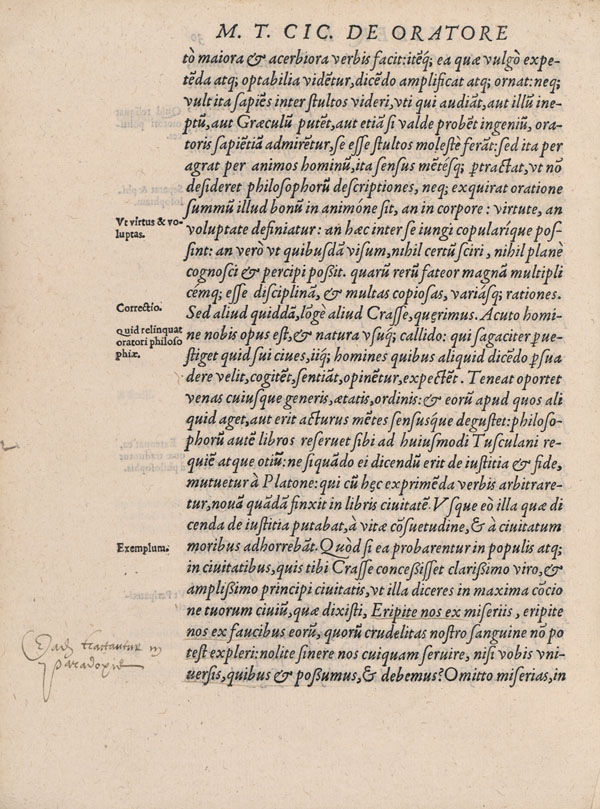 M. T. CIC. DE ORATORE
tò maiora & acerbiora verbis facit:itẽq; ea quæ vulgò expe-
tẽda atq; optabilia vidẽtur,dicẽdo amplificat atq; ornat:neq;
vult ita sapiẽs inter stultos videri,vti qui audiãt,aut illũ ine-
ptũ,aut Græculũ putẽt,aut etiã si valde probẽt ingeniũ, ora-
toris sapiẽtiã admirẽtur,se esse stultos molestè ferãt:sed ita per
agrat per animos hominũ,ita sensus mẽtésq; ꝑtractat,vt nõ
desideret philosophorũ descriptiones, neq; exquirat oratione
summũ illud bonũ in animóne sit, an in corpore : virtute, an
Vt virtus & vo-
luptas.
voluptate definiatur : an hæc inter se iungi copularíque pos-
sint: an verò vt quibusdã visum,nihil certũ sciri , nihil planè
cognosci & percipi poßit. quarũ rerũ fateor magnã multipli
cemq; esse disciplinã, & multas copiosas, variásq; rationes.
Correctio.
Sed aliud quiddã,lõgè aliud Crasse,querimus. Acuto homi-
quid relinquat
oratori philoso
phiæ.
ne nobis opus est,& natura vsuq; callido: qui sagaciter ꝑue-
stiget quid sui ciues,iiq; homines quibus aliquid dicẽdo ꝑsua
dere velit,cogitẽt,sentiãt,opinẽtur,expectẽt . Teneat oportet
venas cuiusque generis,ætatis,ordinis:& eorũ apud quos ali
quid aget,aut erit acturus mẽtes sensusque degustet:philoso-
phorũ autẽ libros reseruet sibi ad huiusmodi Tusculani re-
quiẽ atque otiũ:ne siquãdo ei dicendũ erit de iustitia & fide,
mutuetur à Platone: qui cũ hęc exprimẽda verbis arbitrare-
tur,nouã quãdã finxit in libris ciuitatẽ.Vsque eò illa quæ di
cenda de iustitia putabat,à vitæ cõsuetudine,& à ciuitatum
Exemplum.
moribus adhorrebãt.Quòd si ea probarentur in populis atq;
in ciuitatibus,quis tibi Crasse conceßisset clarißimo viro,&
amplißimo principi ciuitatis,vt illa diceres in maxima cõcio
ne tuorum ciuiũ,quæ dixisti, Eripite nos ex miseriis , eripite
nos ex faucibus eorũ, quorũ crudelitas nostro sanguine nõ po
test expleri:nolite sinere nos cuiquam seruire, nisi vobis vni-
uersis,quibus & poßumus,& debemus?Omitto miserias,in
tractantur in
paradoxis